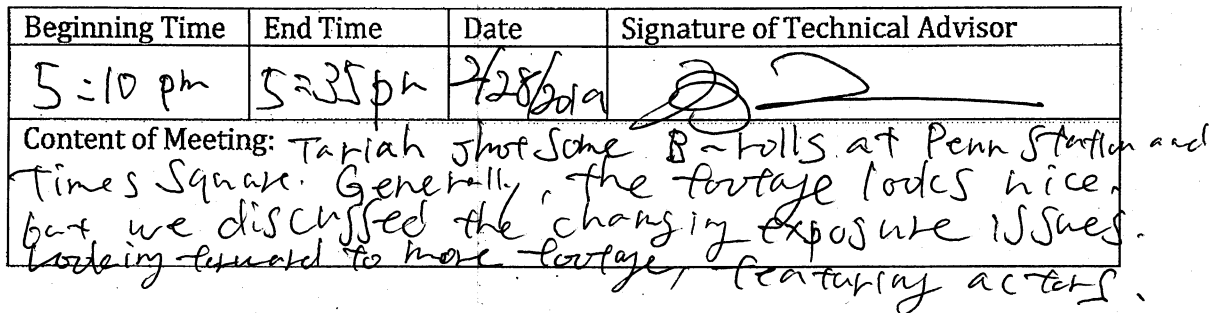 Beginning Time End Time Date Signature of Technical Advisor
5:10 pm 5:35pm 2/28/2019
Content of Meeting: Tariah shot some B-rolls at Penn Station and
Times Square. Generally, the footage looks nice,
but we discussed the changing exposure issues.
Looking forward to more footage, featuring actors.